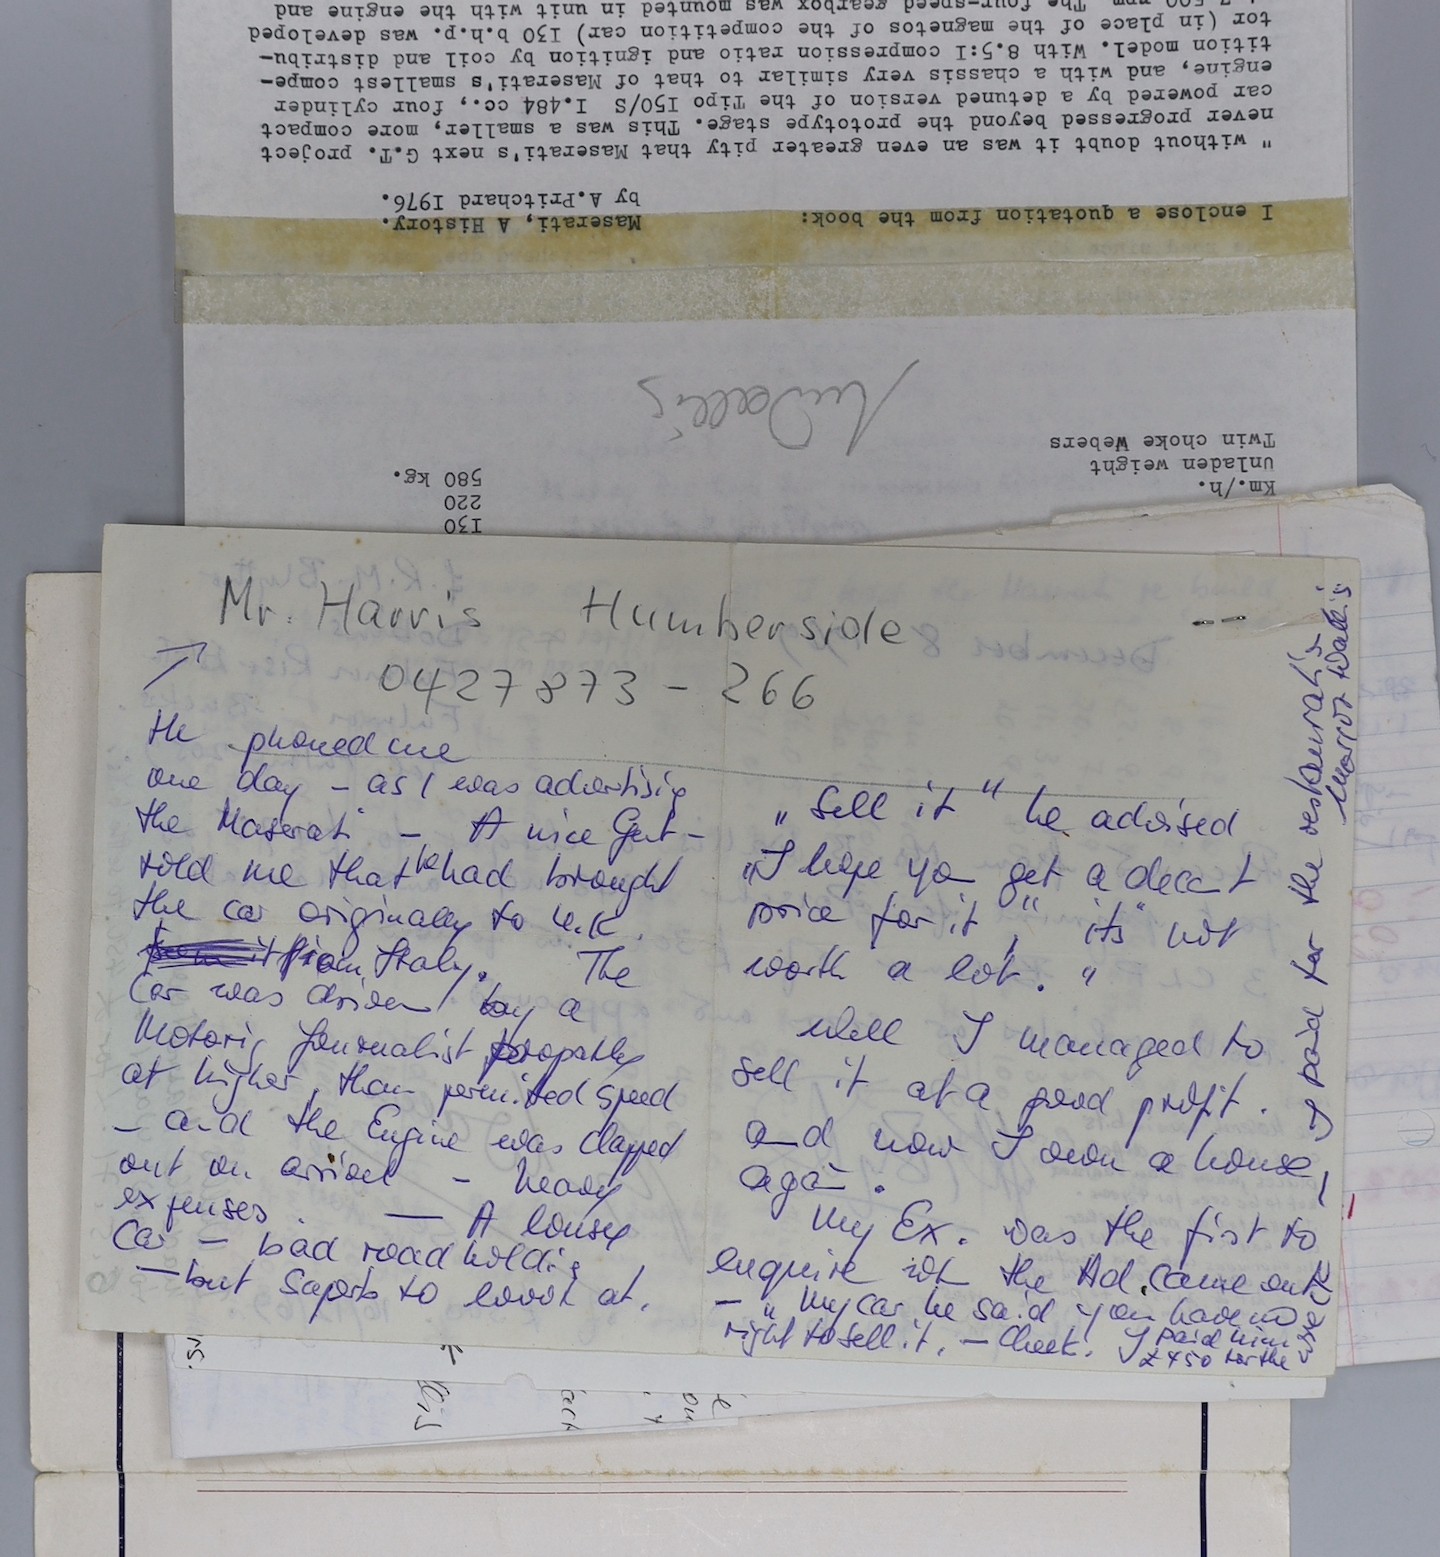 & 7,500 rpm. The four-speed gearbox was mounted in unit with the engine and
tor (in place of the magnetos of the competition car) I30 b.h.p. was developed
tition model. With 8.5:I compression ratio and ignition by coil and distribu-
engine, and with a chassis very similar to that of Maserati's smallest compe-
car powered by a detuned version of the Tipo I50/S I.484 cc., four cylinder
never progressed beyond the prototype stage. This was a smaller, more compact
" without doubt it was an even greater pity that Maserati's next G.T. project
by A.Pritchard I976.
I enclose a quotation from the book: Maserati, A History.
Twin choke Webers
Unladen weight 580 kg.
Km./h. 220
I30
Mr. Harris Humberside
0427873 - 266
He phoned me
one day - as I was advertising
the Maserati - A nice Gent -
told me that he had brought
the car originally to U.K.
from Italy. The
Car was driven by a
Motoring Journalist
at higher, than permitted Speed
- and the Engine was clapped
out on arrival - heavy
expenses. — A lousy
Car - bad road holding
- but Superb to look at.
„ Sell it " he advised
„I hope you get a decent
price for it", "its not
worth a lot. "
Well I managed to
sell it at a good profit.
and now I own a house,
again.
My Ex. was the first to
enquire when the Ad. came out
- „ My car he said you have no
right to sell it. - Cheek. I paid him
£450 for the
I paid for the restauration
Marion Wallis